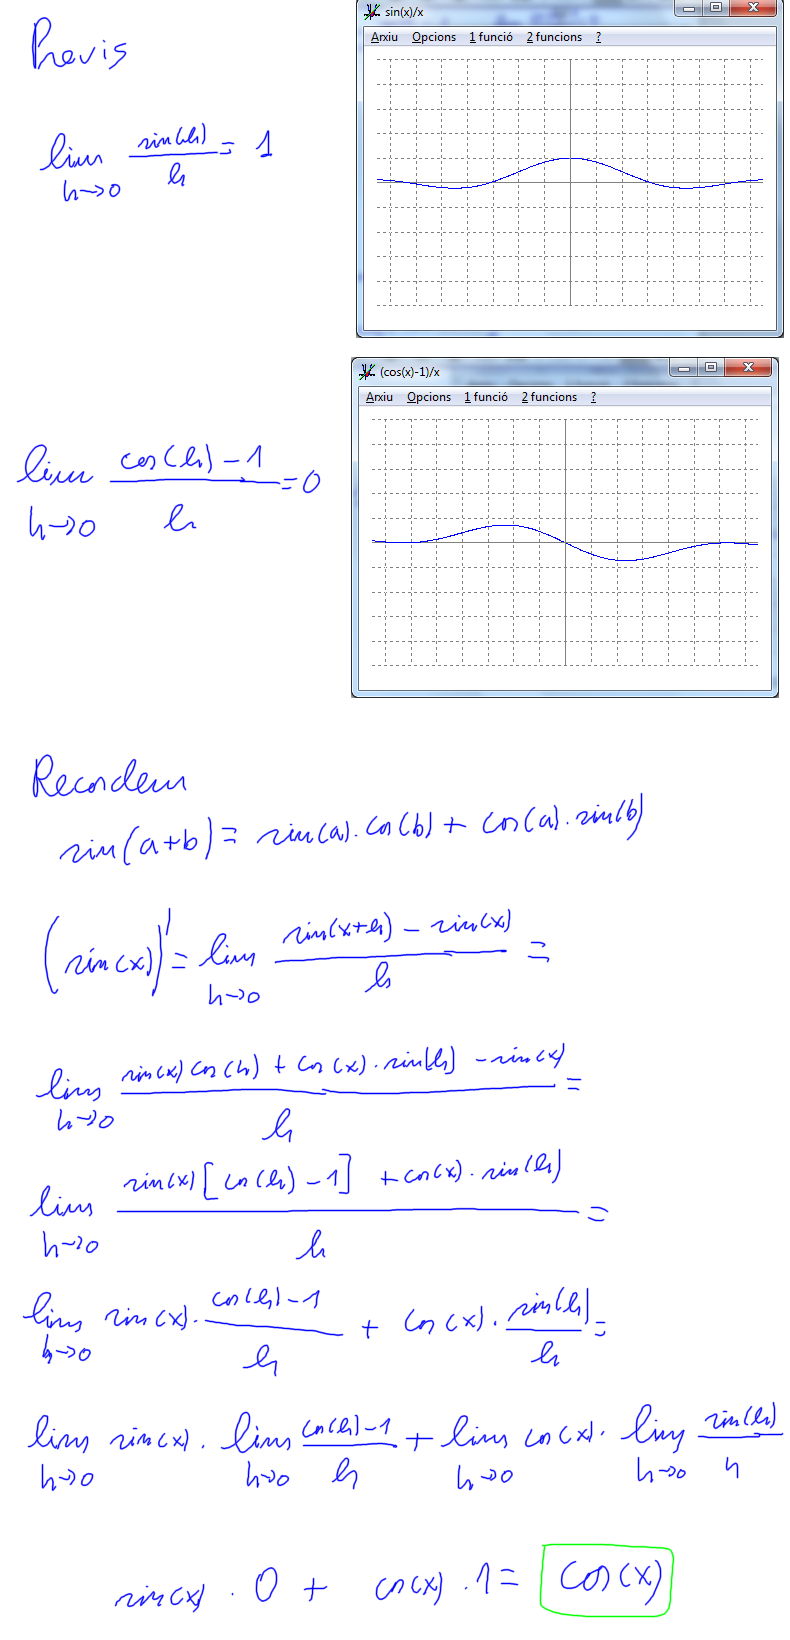 Previs
sin(x)/x
Arxiu Opcions 1 funció 2 funcions ?
lim h→0 sin(h)/h = 1
(cos(x)-1)/x
Arxiu Opcions 1 funció 2 funcions ?
lim h→0 cos(h)-1/h = 0
Recordem
sin(a+b) = sin(a)·cos(b) + cos(a)·sin(b)
(sin(x))' = lim h→0 sin(x+h) - sin(x)/h =
lim h→0 sin(x)cos(h) + cos(x)·sin(h) - sin(x)/h =
lim h→0 sin(x)[cos(h)-1] + cos(x)·sin(h)/h =
lim h→0 sin(x)·cos(h)-1/h + cos(x)·sin(h)/h =
lim h→0 sin(x)·lim h→0 cos(h)-1/h + lim h→0 cos(x)·lim h→0 sin(h)/h
sin(x)·0 + cos(x)·1 = cos(x)